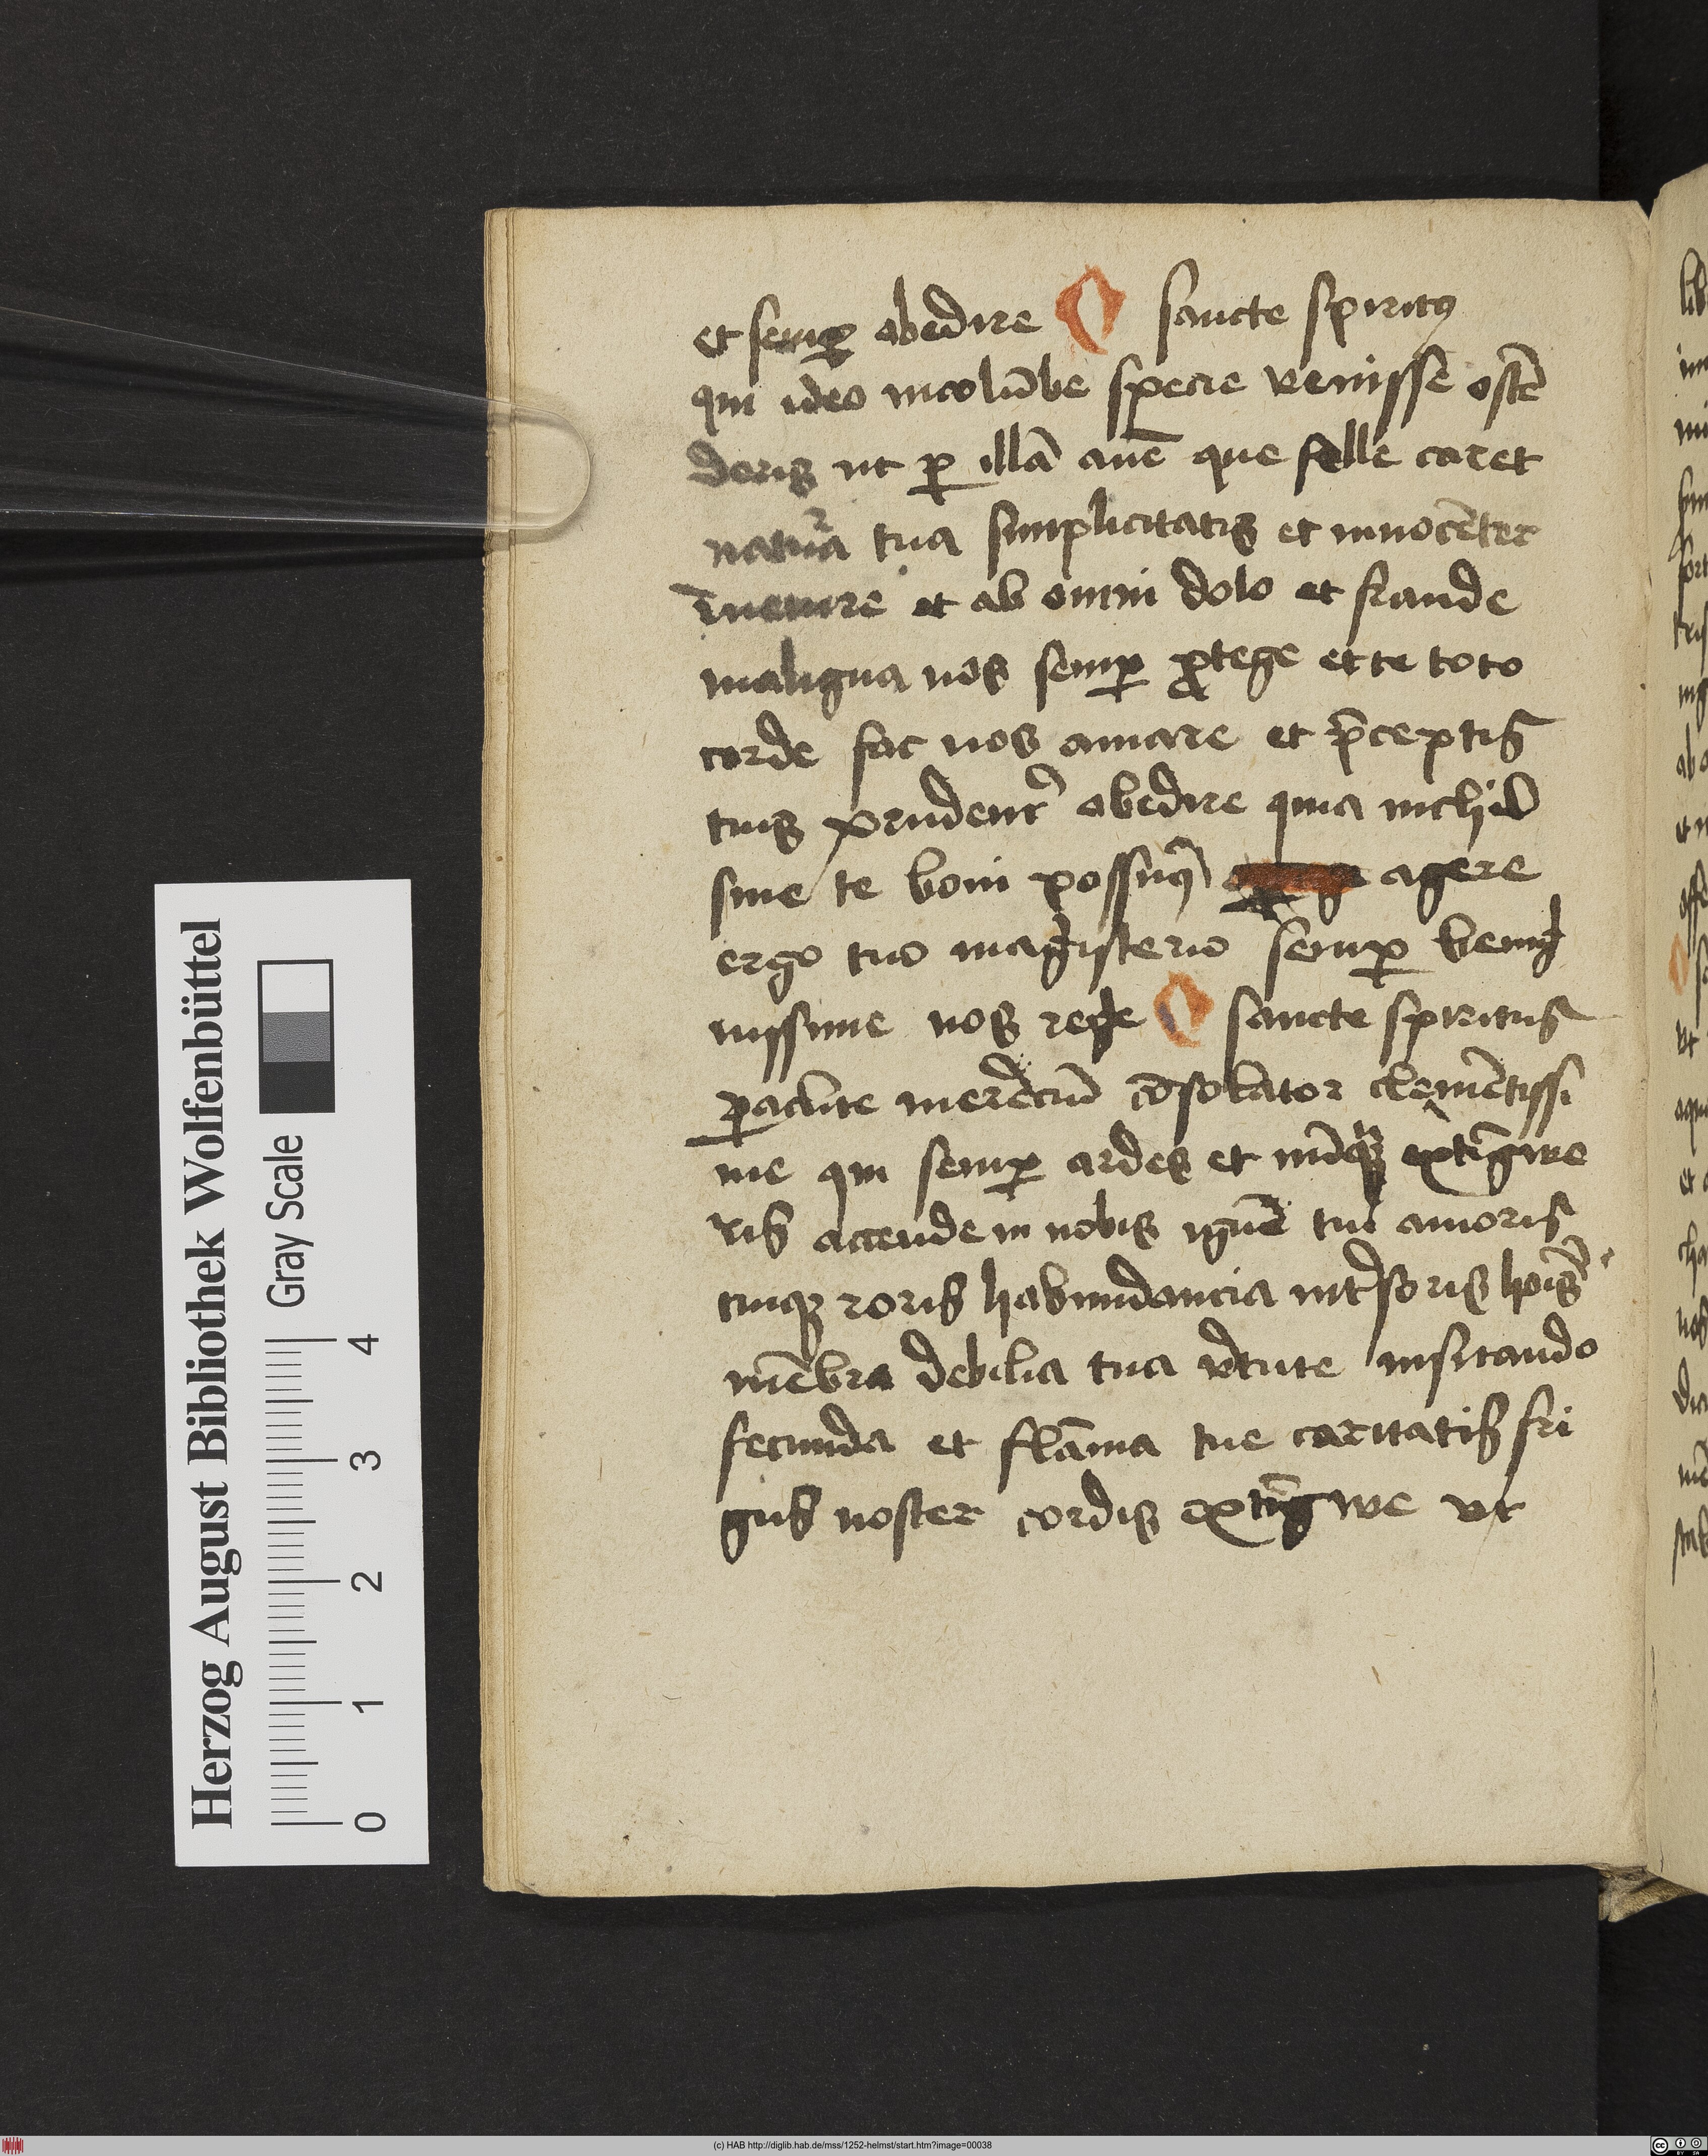 et semꝑ obedire O sancte spiritꝯ
qui ideo in colūbe specie venisse ostē
deris ut ꝑ illā auē que felle caret
natura tua simplicitatis et innocēter
et ab omni dolo et fraude
maligna nos semꝑ ꝓtege et te toto
corde fac nos amare et p̄ceptis
tuis prudent̉ obedire quia nichil
sine te boni possumꝯ agere
ergo tuo magisterio semꝑ benig
nissime nos rege O sancte spiritus
ꝑaclite merēciū cōsolator clemētissi
me qui semꝑ ardes et nūqͣꝫ extīgwe
ris accende in nobis ignē tui amoris
tuiqꝫ roris habundancia int̉ioris hoīs
mēbra debilia tua v̉tute visitando
fecunda et flāma tue caritatis fri
gus noster cordis extīgwe vt
Herzog August Bibliothek Wolfenbüttel
Gray Scale
0 1 2 3 4
(c) HAB http://diglib.hab.de/mss/1252-helmst/start.htm?image=00038